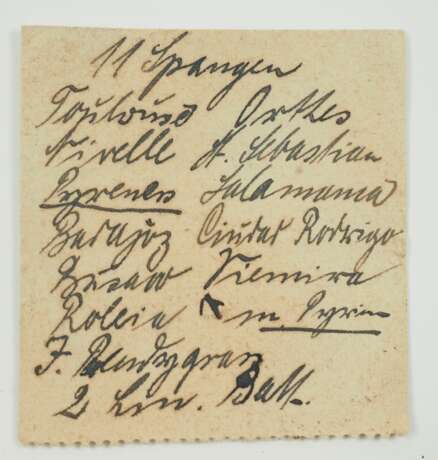 11 Spangen
Toulouse Orthes
Nivelle St. Sebastian
Pyrenes Salamanca
Badajoz Ciudad Rodrigo
Busaco Vimiera
Roleia m.
J.
2 Lin. Batt.